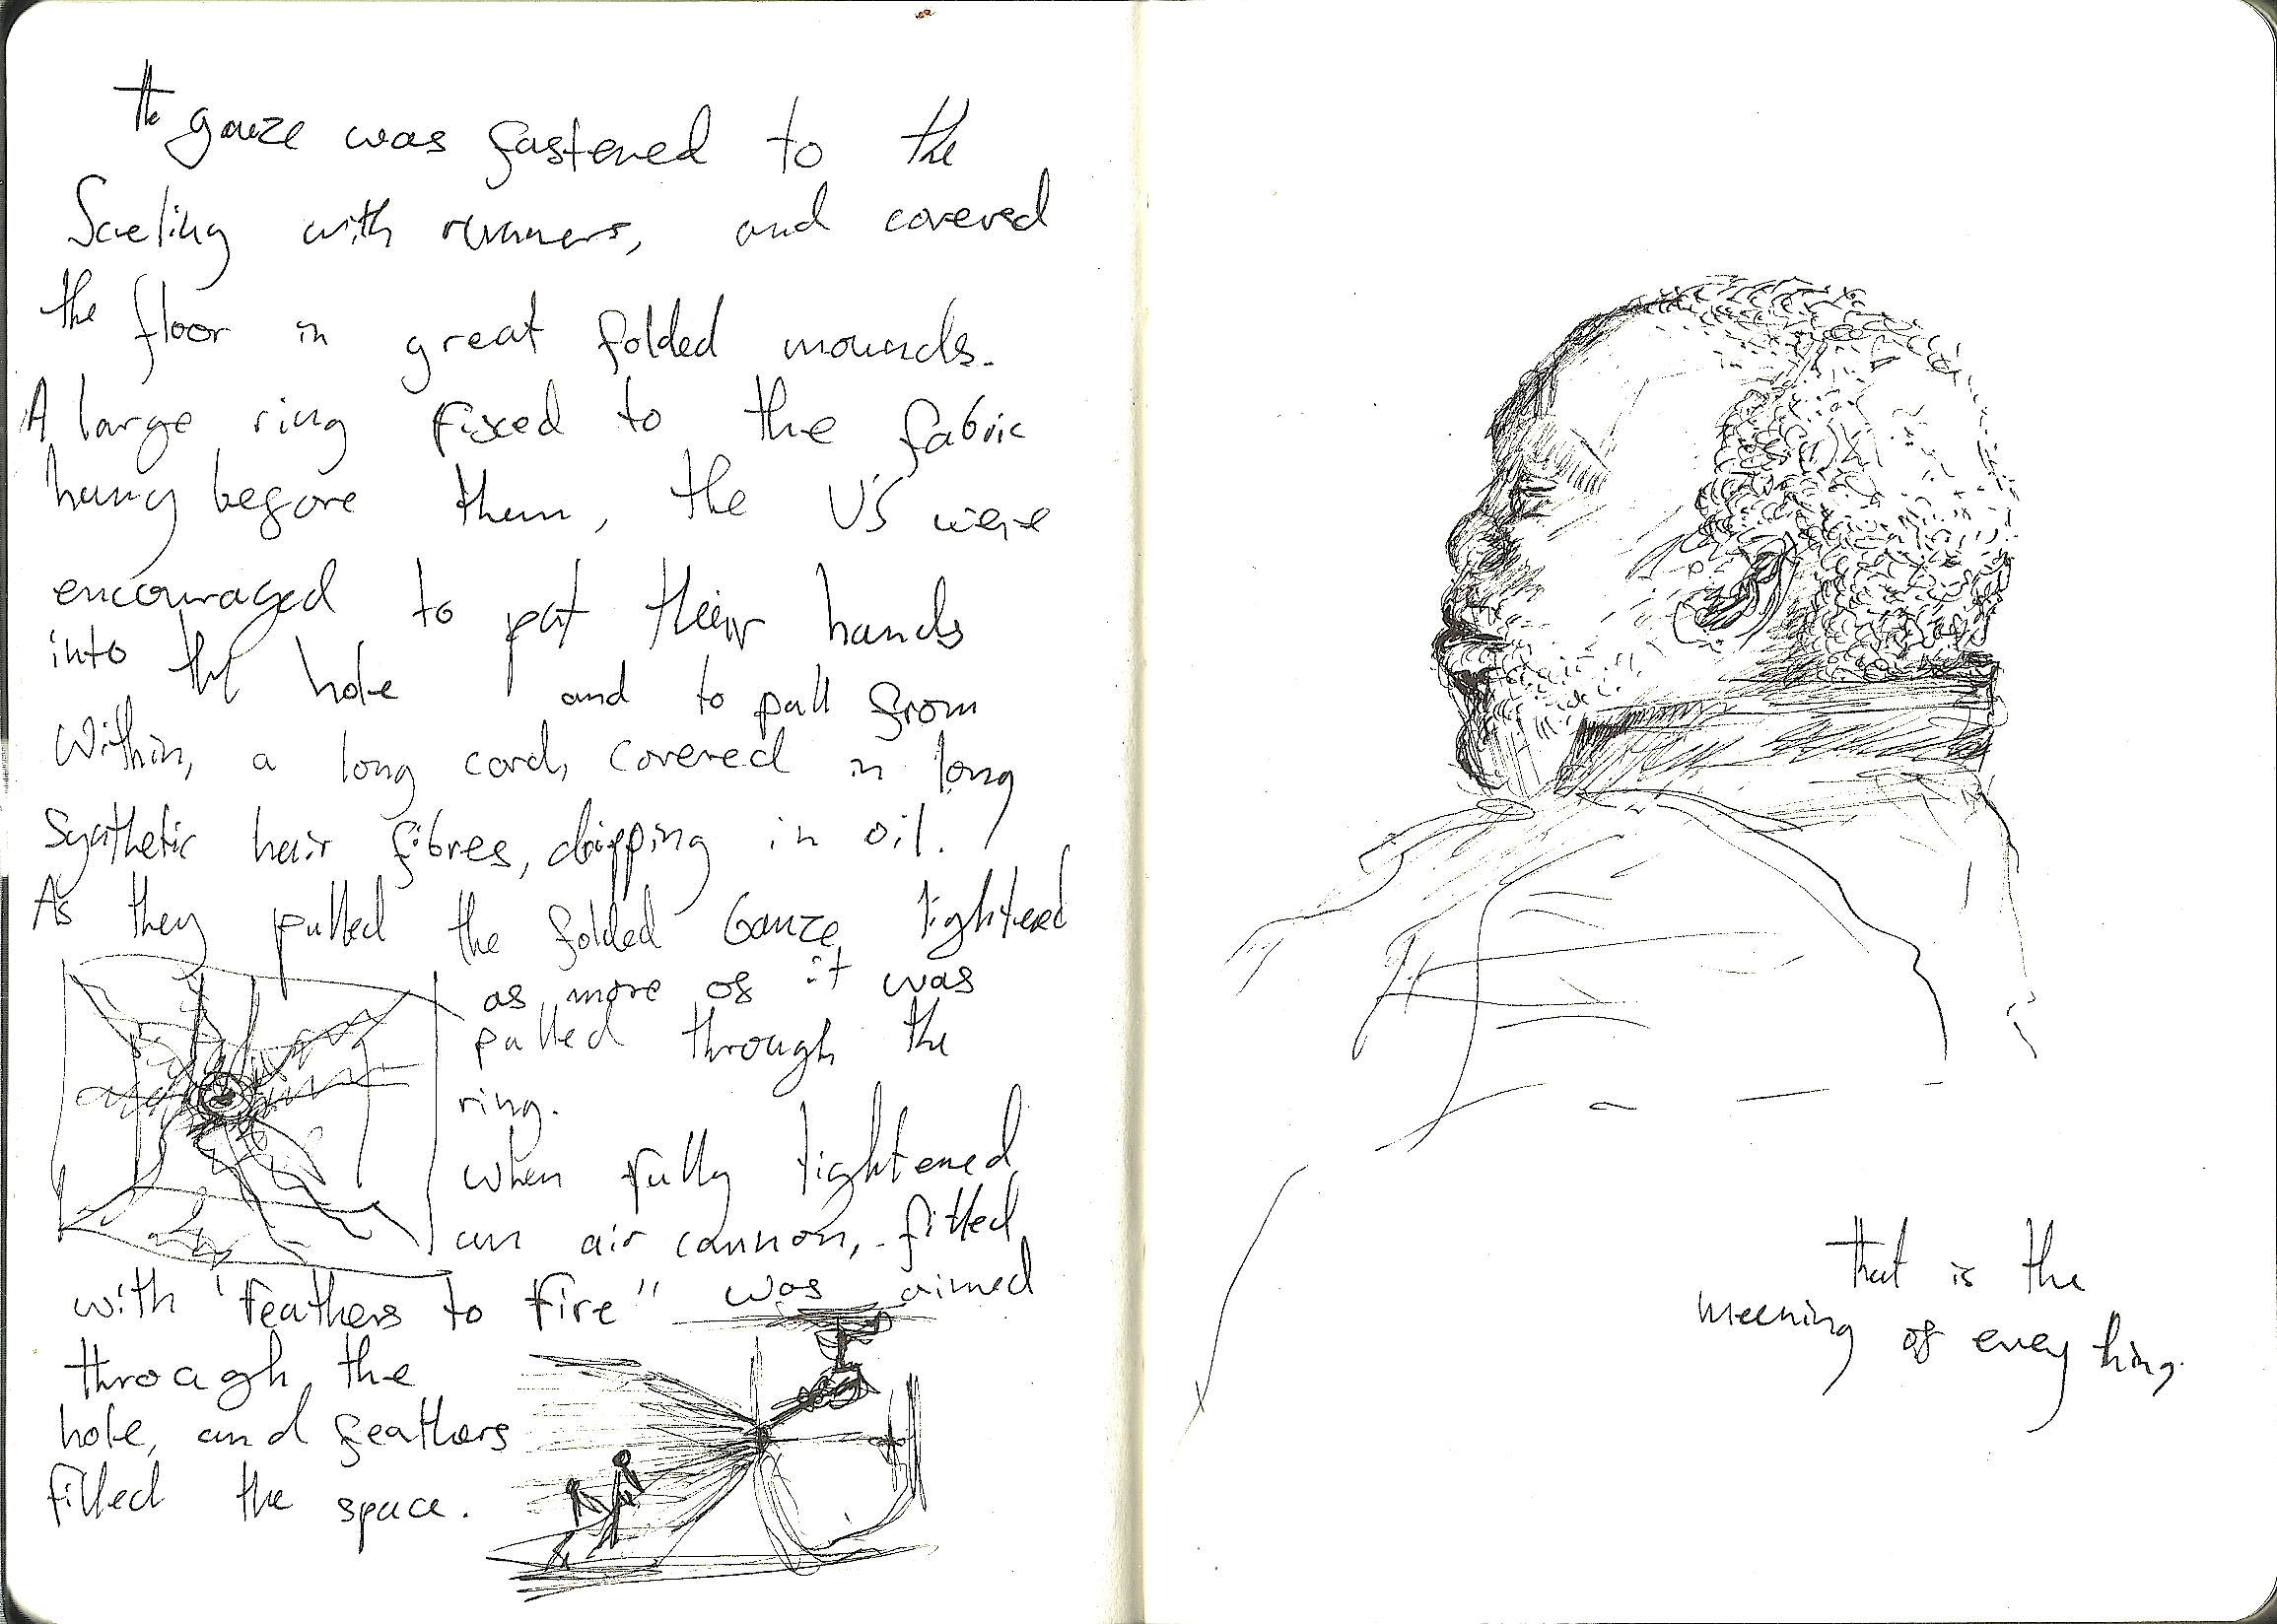 the gauze was fastened to the
Scieling with runners, and covered
the floor in great folded mounds.
A large ring Fixed to the fabric
hung before them, the US were
encouraged to put their hands
into the hole and to pull from
Within, a long cord, covered in long
Synthetic hair fibres, dripping in oil.
As they pulled the folded Gauze tightened
as more of it was
pulled through the
ring.
When fully tightened
an air cannon, fitted
with "Feathers to Fire" was aimed
through the
hole, and feathers
filled the space.
that is the
meening of every thing.